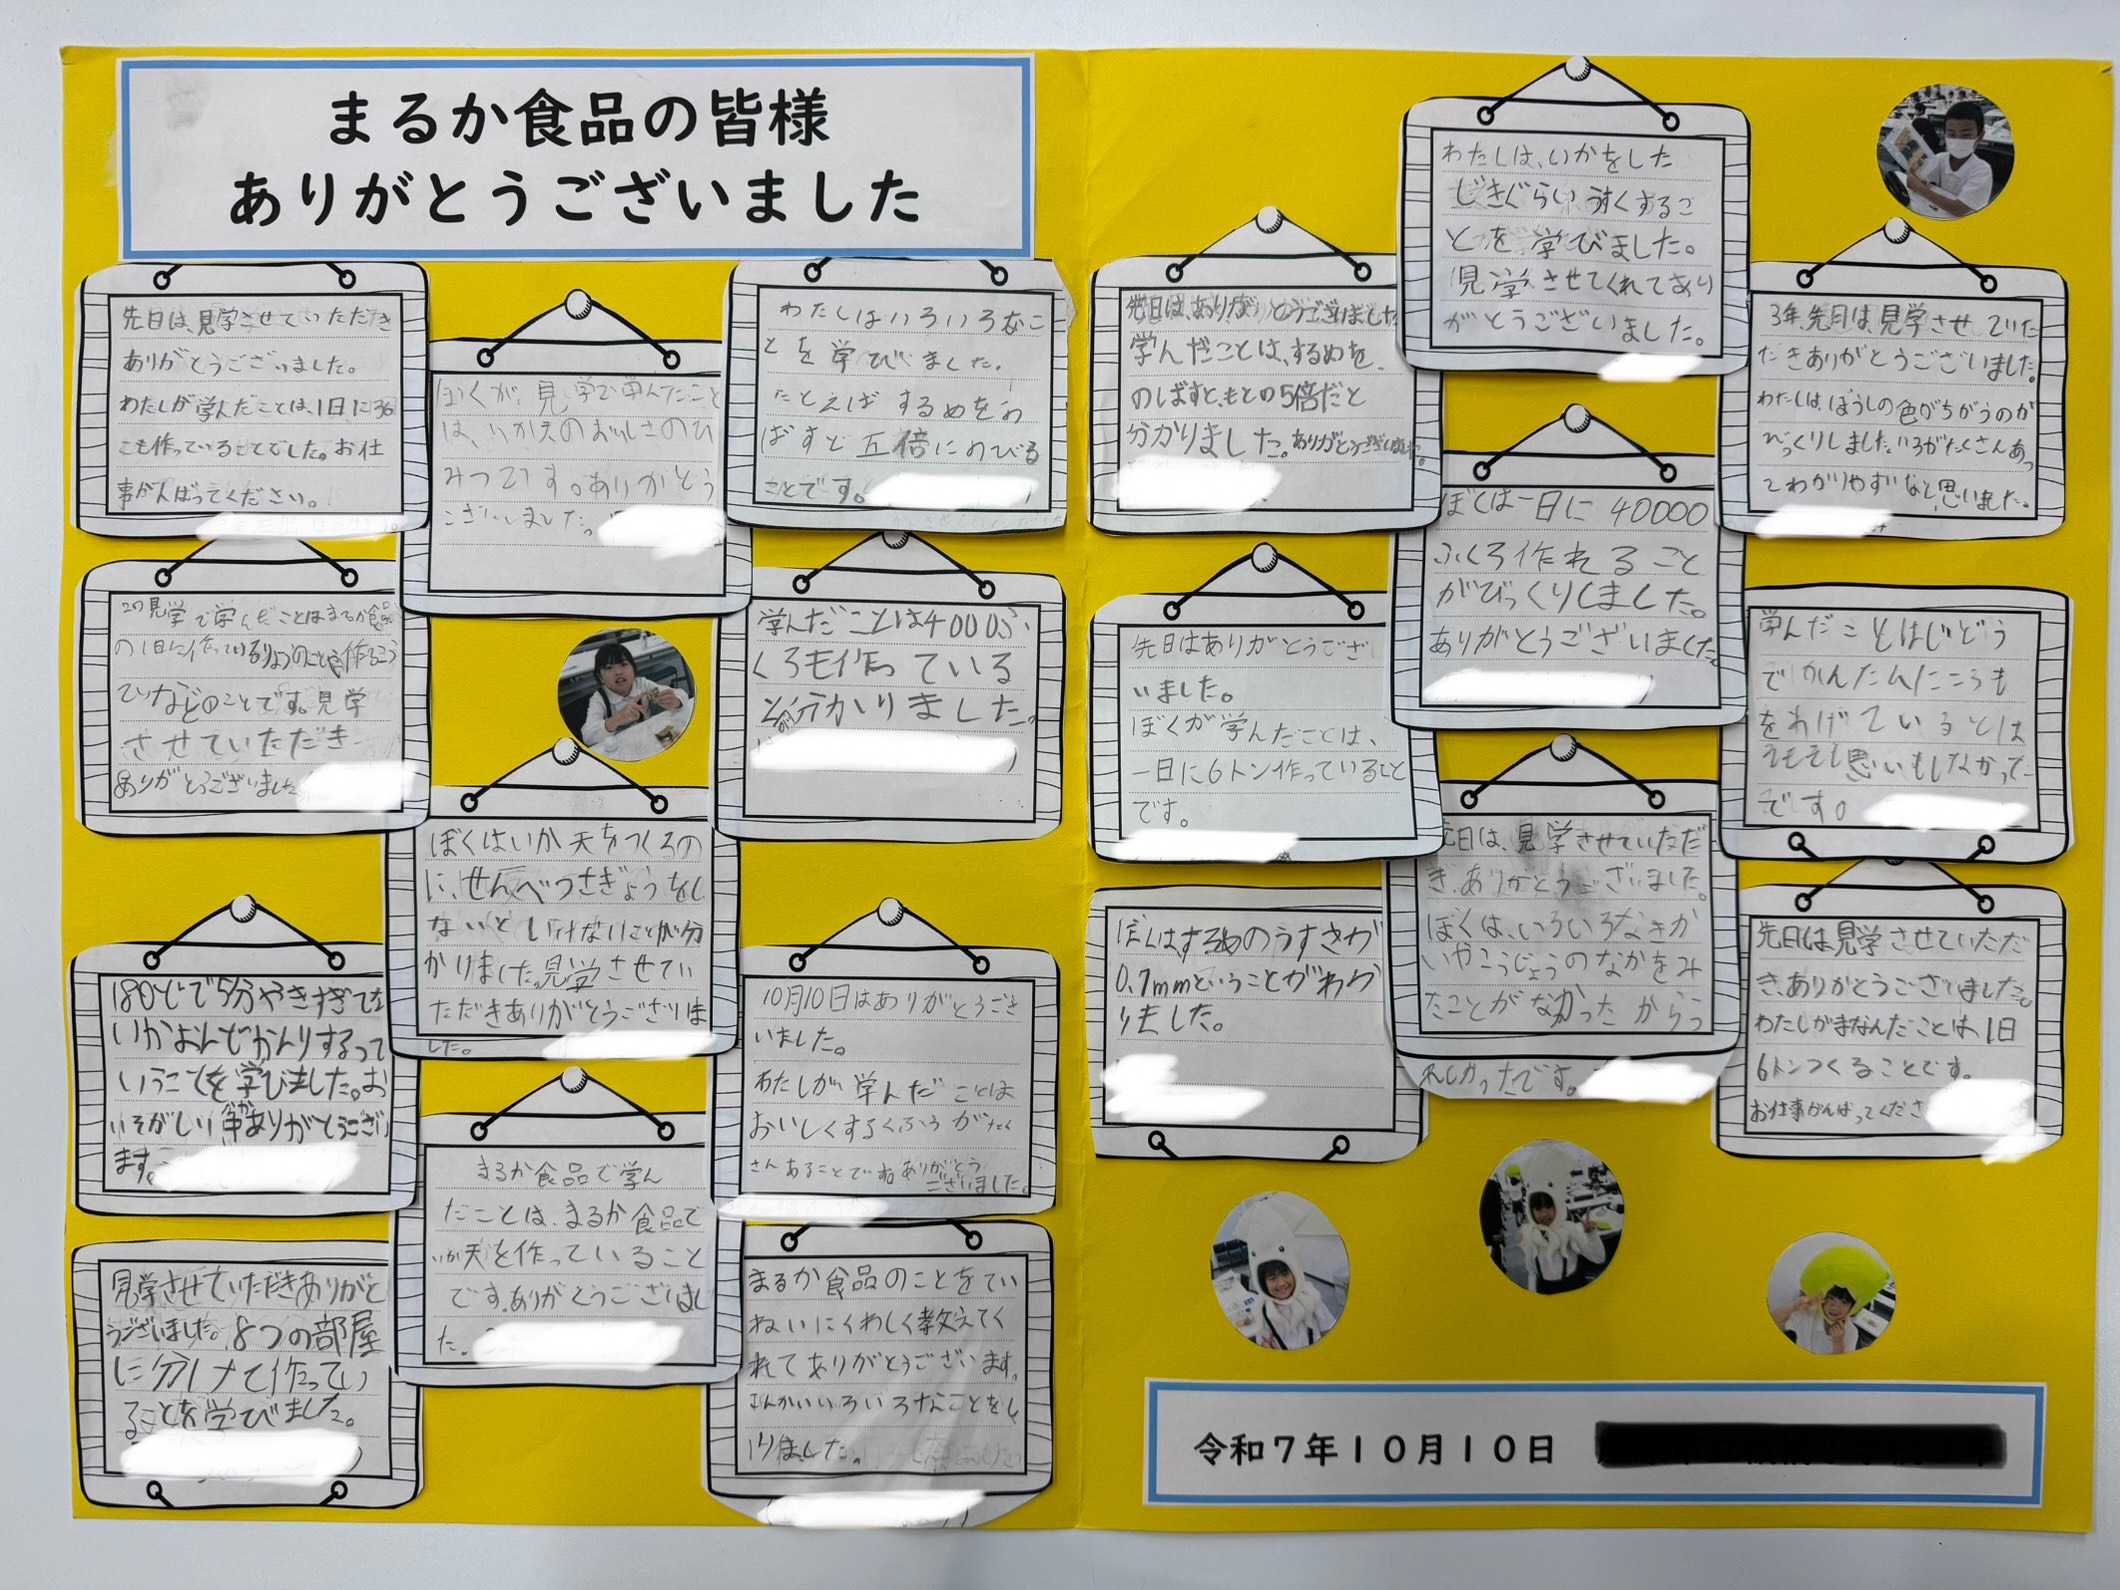 まるか食品の皆様
ありがとうございました
先日は、見学させていただき
ありがとうございました。
わたしが学んだことは、1日に36
こも作っていることでした。お仕
事がんばってください。
ぼくが、見学で学んだこと
は、いか天のおいしさのひ
みつです。ありがとう
ございました。
わたしはいろいろなこ
とを学びました。
たとえばするめを
ばすと五倍にのびる
ことです。
この見学で学んだことはまるか食品
の1日に作っているりょうのことや作るこう
ていなどのことです。見学
させていただき
ありがとうございました
学んだことは4000ふ
くろも作っている
と分かりました。
ぼくはいか天をつくるの
に、せんべつさぎょうをし
ないといけないことが分
かりました。見学させてい
ただきありがとうございま
した。
180どで5分やきすぎてな
いかよんでかんりするって
いうことを学びました。お
いそがしい中ありがとうござい
ます。
10月10日はありがとうござ
いました。
わたしが学んだことは
おいしくするくふうがたく
さんあることですねありがとう
ございました。
まるか食品で学ん
だことは、まるか食品で
いか天を作っていること
です。ありがとうございまし
た。
見学させていただきありがと
うございました。8つの部屋
に分けて作ってい
ることを学びました。
まるか食品のことをてい
ねいにくわしく教えてく
れてありがとうございます。
さんかいいろいろなことをし
りました。
先日は、ありがとうございました
学んだことは、するめを
のばすと、もとの5倍だと
分かりました。ありがとうございました。
わたしは、いかをした
じきぐらいうすくするこ
とを学びました。
見学させてくれてあり
がとうございました。
3年、先日は、見学させていた
だきありがとうございました。
わたしは、ぼうしの色がちがうのが
びっくりしました。いろがたくさんあっ
てわかりやすいなと思いました。
ぼくは一日に40000
ふくろ作れること
がびっくりしました。
ありがとうございました
先日はありがとうござ
いました。
ぼくが学んだことは、
一日に6トン作っていること
です。
学んだことはじどう
でかんたんにころも
をわけていることは
そもそも思いもしなかった
です。
先日は、見学させていただ
き、ありがとうございました。
ぼくは、いろいろなきか
いやこうじょうのなかをみ
たことがなかったからう
れしかったです。
ぼくは、するめのうすさが
0.7mmということがわか
りました。
先日は見学させていただ
き、ありがとうございました。
わたしがまなんだことは、1日
6トンつくることです。
お仕事がんばってくださ
令和7年10月10日